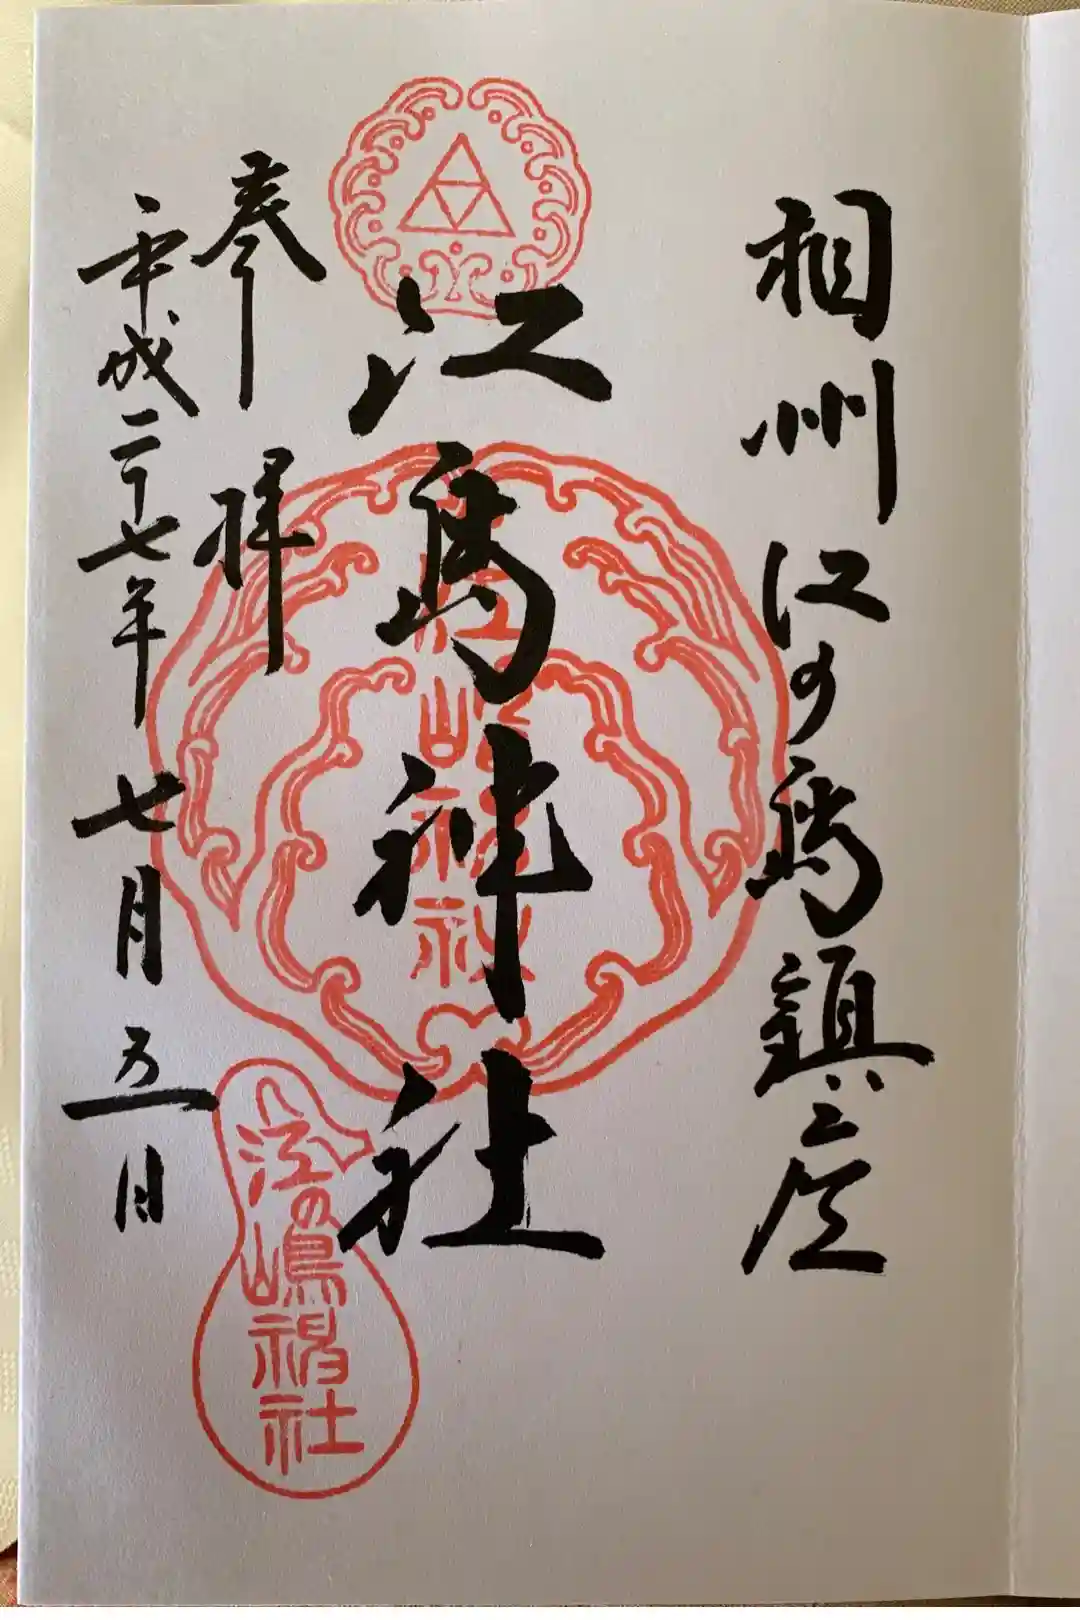 相州江の島鎮座
江島神社
参拝
平成二十七年七月五日
江の嶋神社